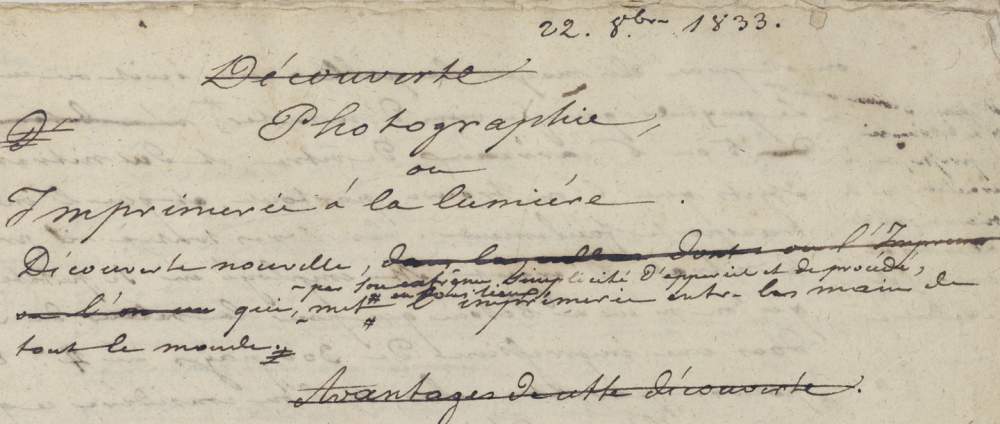 22. 8bre 1833.
Découverte
Photographie,
ou
Imprimerie à la lumiére.
Découverte nouvelle, dans laquelle dont ou l'Imprime
par son extrême simplicité d'appareil et de procédé,
en tous lieux
qui, met l'imprimerie entre les main de
tout le monde.
Avantages de cette découverte.